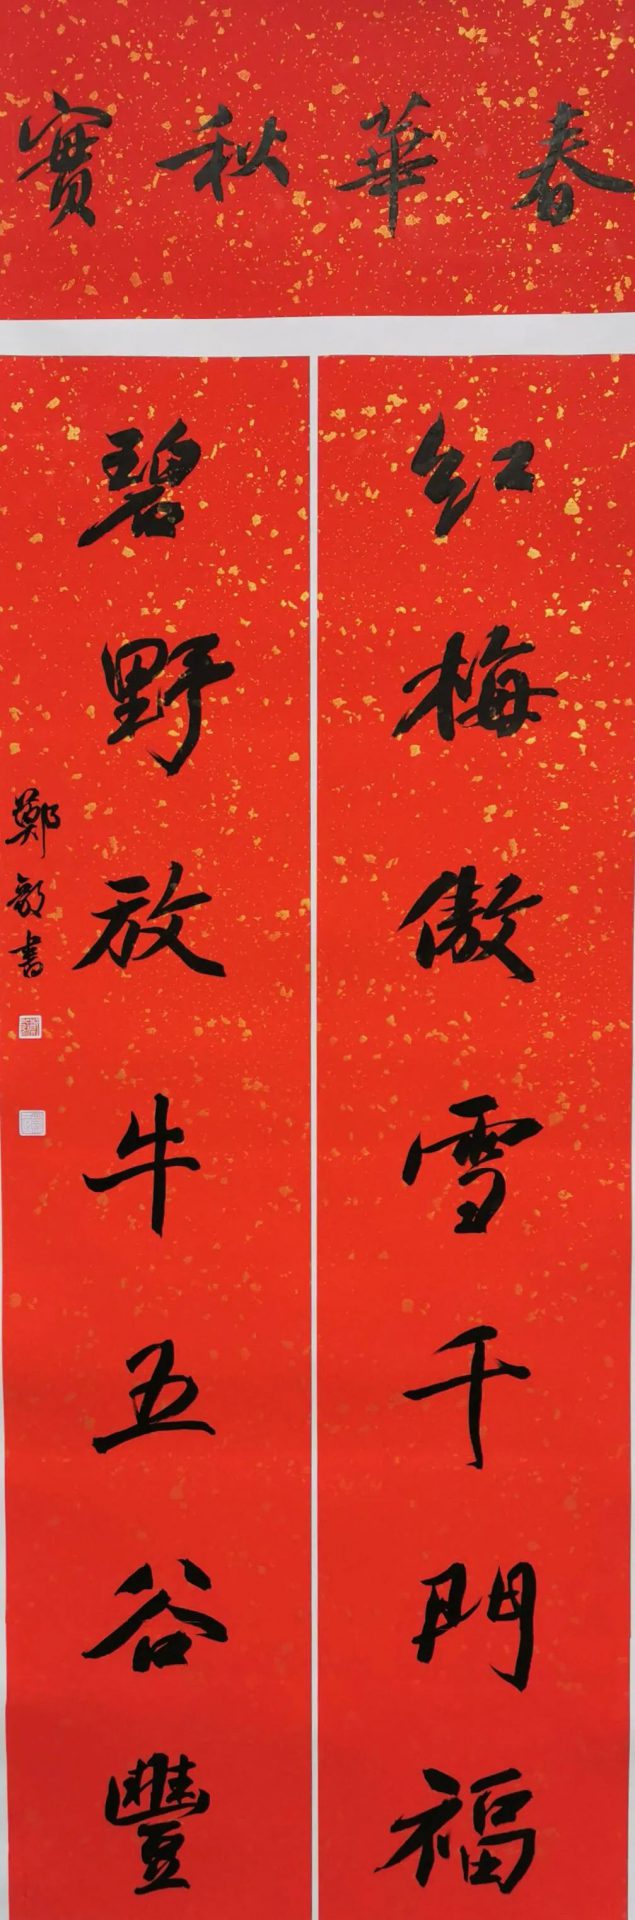 春華秋實
红梅傲雪千門福
碧野放牛五谷豐
鄭毅書